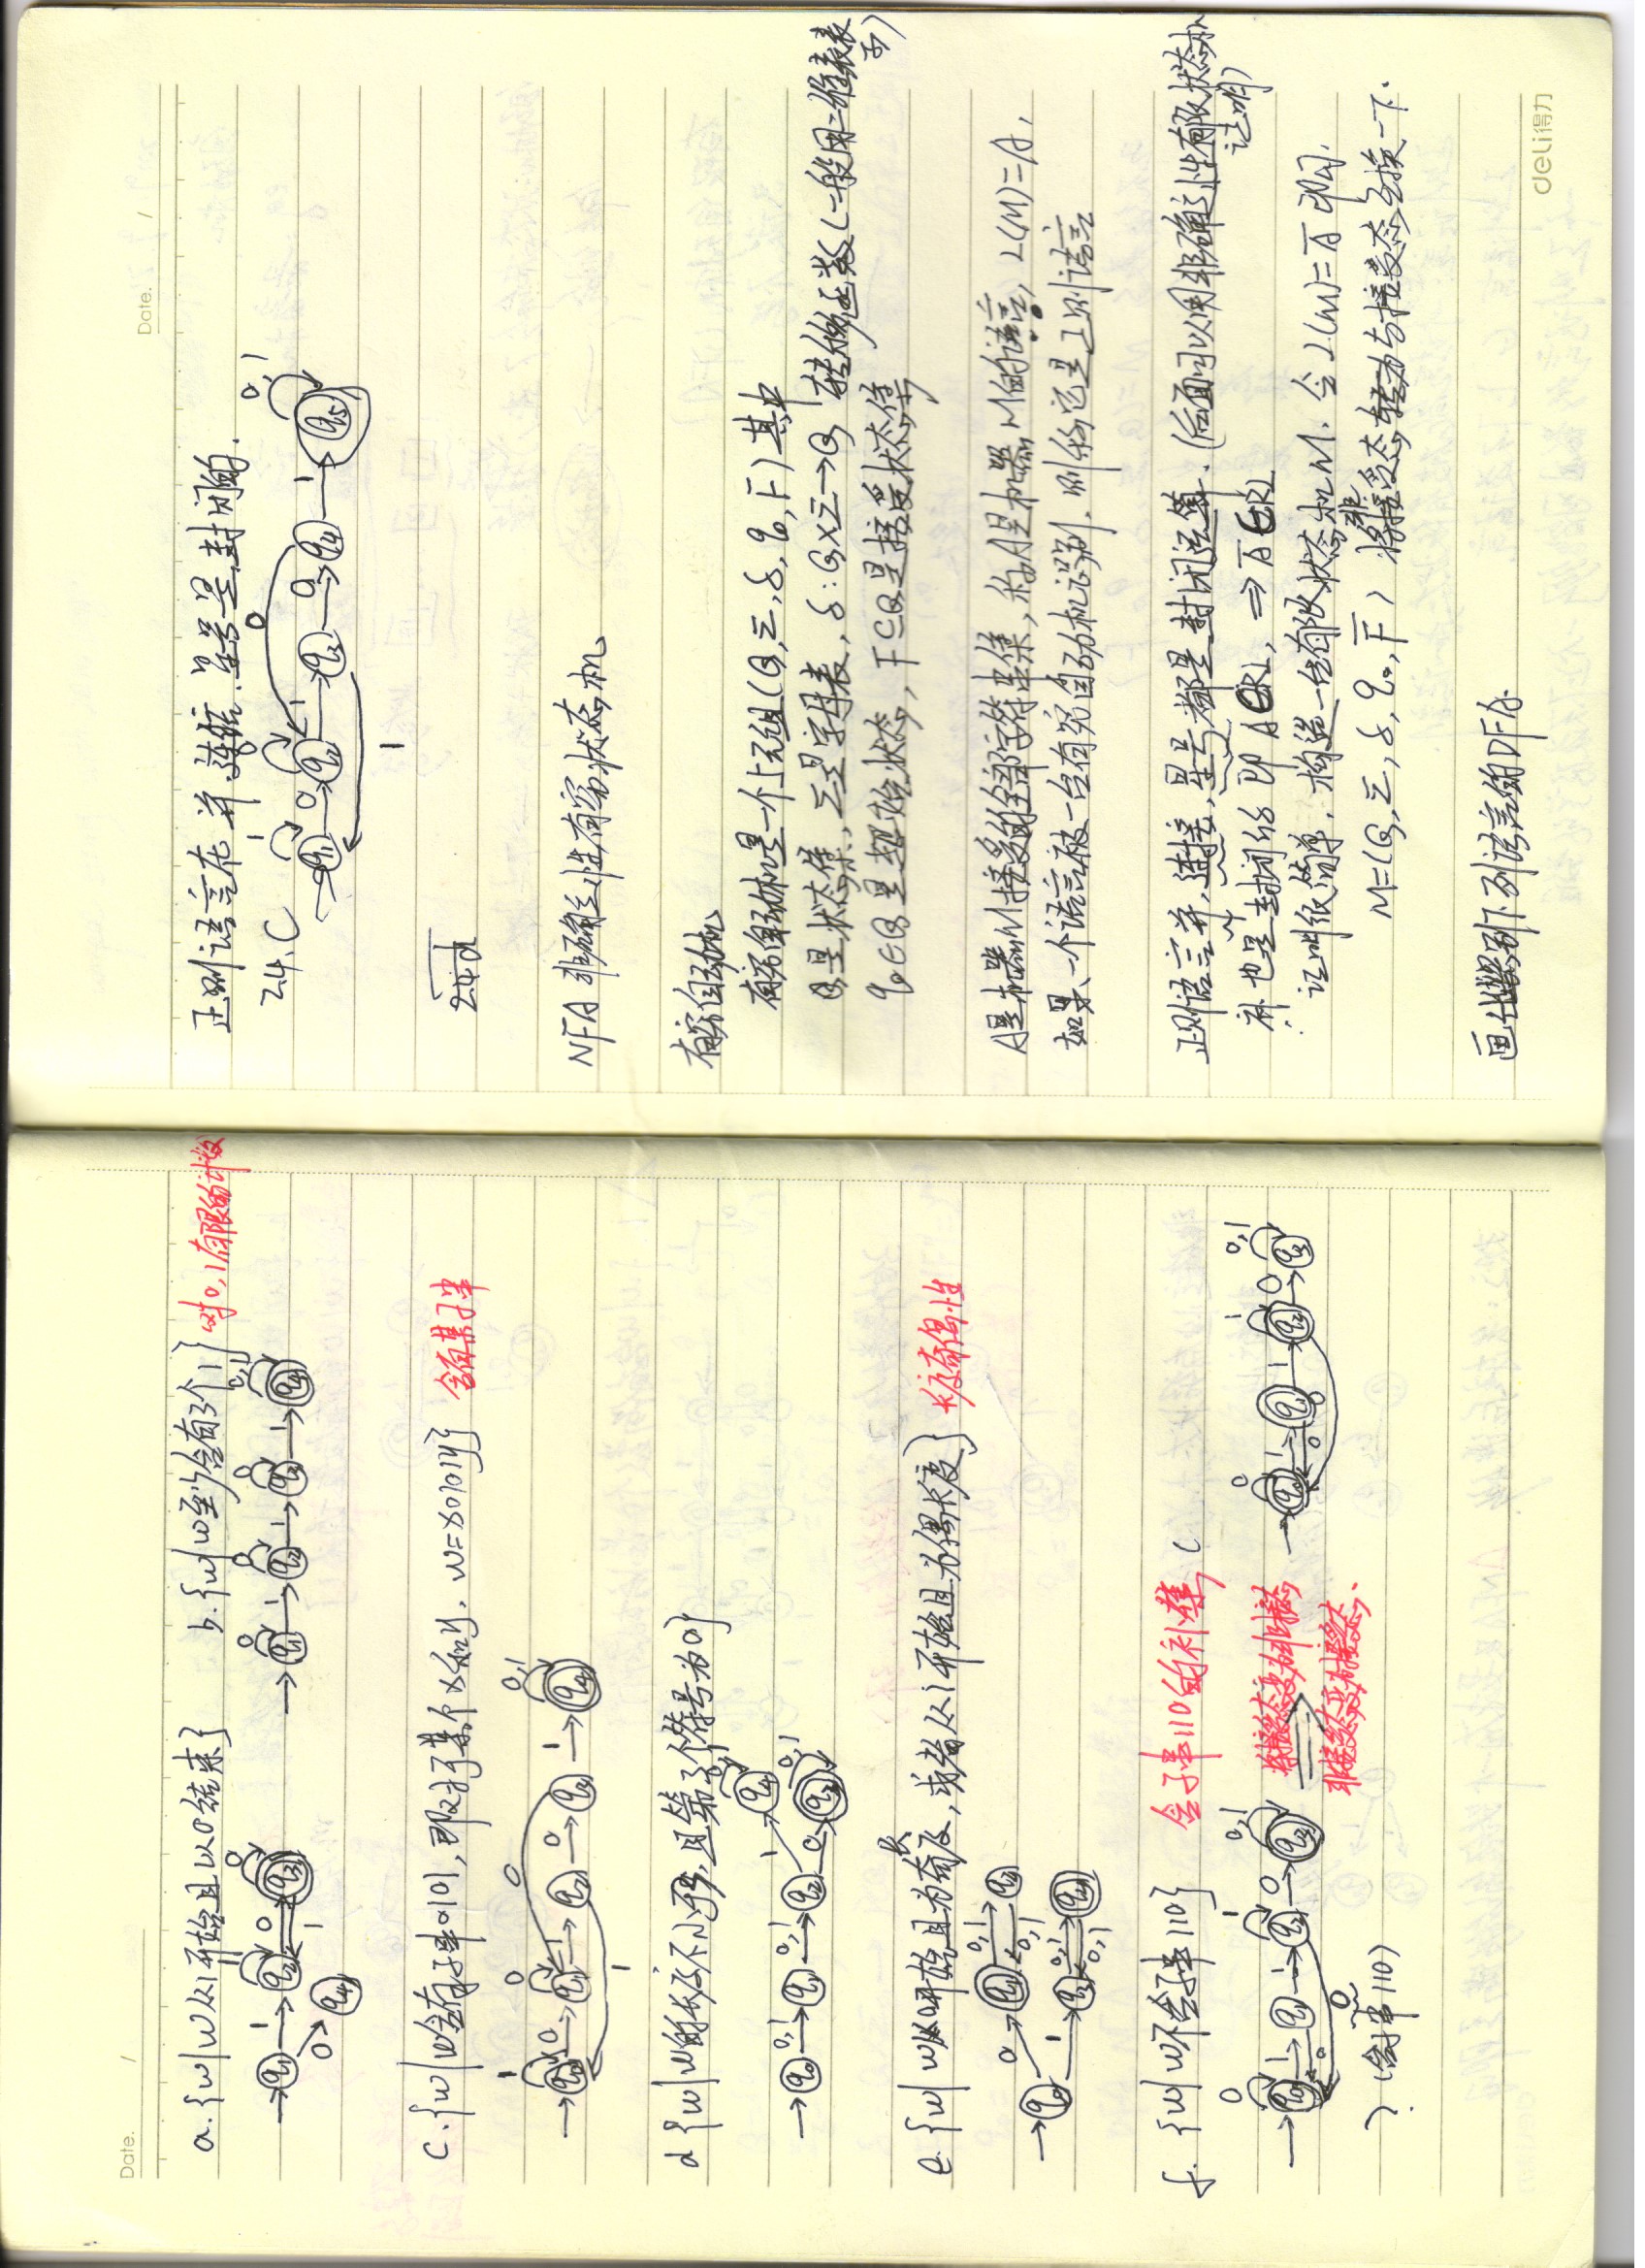 Date. /
a. {w|w从1开始且以0结束}
b. {w|w至少含有3个1} 对0,1有限的计数
1 0
q1 1 q2 0 q3
1
0 q4
0 0 0 0,1
q1 1 q2 1 q3 1 q4
c. {w|w含有子串0101, 即对于某个x和y, w=x0101y} 含有某子串
1 0 0 0,1
q0 0 q1 1 q2 0 q3 1 q4
1
d {w|w的长度不小于3, 且第3个符号为0}
0,1
q4
q0 0,1 q1 0,1 q2 1
0 q3 0,1
e. {w|w从0开始且为奇长度, 或者从1开始且为偶长度} 长度奇偶性
0 q1 0,1 q2
0,1
q0
1 q3 0,1 q4
0,1
f. {w|w不含子串110} 含子串110的补集
0 1 0,1
q0 1 q1 1 q2 0 q3
0
0
将接受态变为非接受态
非接受态变为接受态.
0 1 0,1
q0 1 q1 1 q2 0 q3
0 0
? (含子串110)
Date. /
正则语言在并,连结,星号是封闭的.
2.4.C
1 0 0 0,1
q1 0 q2 1 q3 0 q4 1 q5
1
2.4 d
NFA 非确定性有穷状态机
有穷自动机
有穷自动机是一个5元组(Q,Σ,δ,q0,F)其中
Q是状态集, Σ是字母表, δ:Q×Σ→Q 转移函数(一般用二维表表示)
q0∈Q是起始状态, F⊆Q是接受状态集
A是机器M接受的全部字符串集, 称A是机器M的语言, L(M)=A,
如果一个语言被一台有穷自动机识别, 则称它是正则语言
正则语言并, 连接, 星号都是封闭运算. (后面可以用非确定性有限状态机证明)
补也是封闭的 即 A∈RL, ⇒ A̅∈RL
证明很简单, 构造一台有限状态机M, 令L(M)=A̅即可.
M=(Q,Σ,δ,q0,F̅) 将非接受态转为与接受态互换一下.
画出识别下列语言的DFA.
deli得力